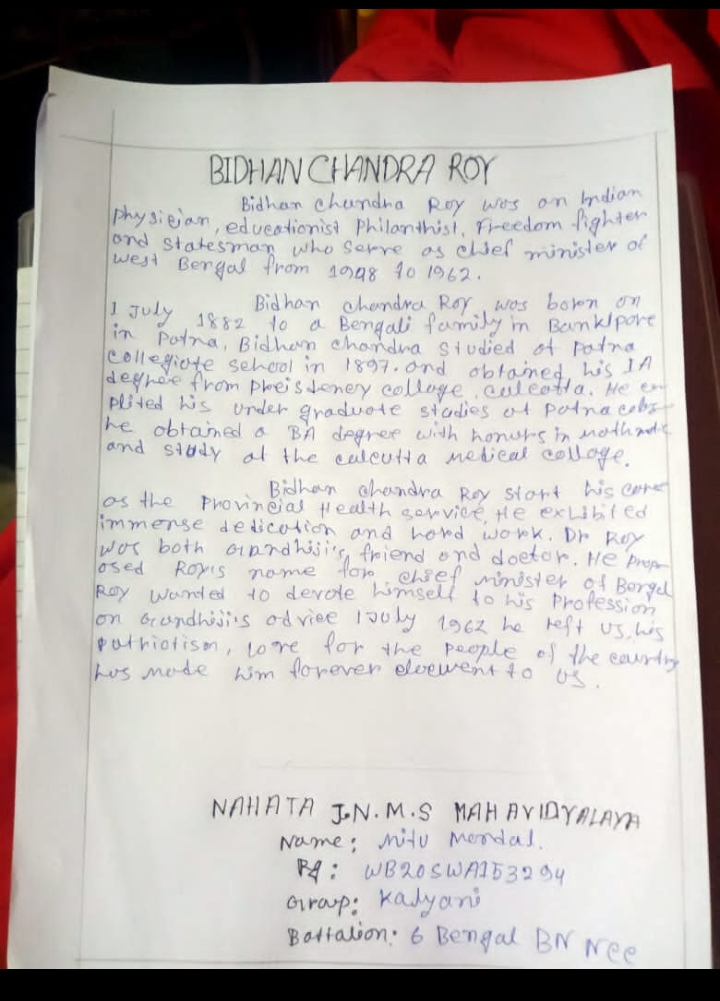 BIDHAN CHANDRA ROY
Bidhan Chandra Roy was an Indian
physicjan, educationist Philanthist, Freedom fighter
and statesman who serve as chief minister of
west Bengal from 1948 to 1962.
Bidhan chandra Roy was born on
1 July 1882 to a Bengali family in Bankipore
in Patna, Bidhan chandra studied at Patna
collegiate school in 1897. and obtained his IA
degree from college calcatta. He com
plited his under graduate studies at Patna
he obtained a BA degree with honurs in
and study at the calcutta medical collage.
Bidhan chandra Roy start his care
as the Provincial Health service, He exhibited
immense dedication and hard work. Dr Roy
was both Gandhiji's friend and doctor. He prop
osed Roy's name for chief minister of Bengal
Roy wanted to devote himself to his Profession
on Gandhiji's advice 1 July 1962 he left us, his
patriotism, love for the people of the country
has made him forever to us.
NAHATA J.N.M.S MAHAVIDYALAYA
Name: Mitu Mondal.
WB20SWA153294
Group: Kalyani
Battalion: 6 Bengal BN NCC